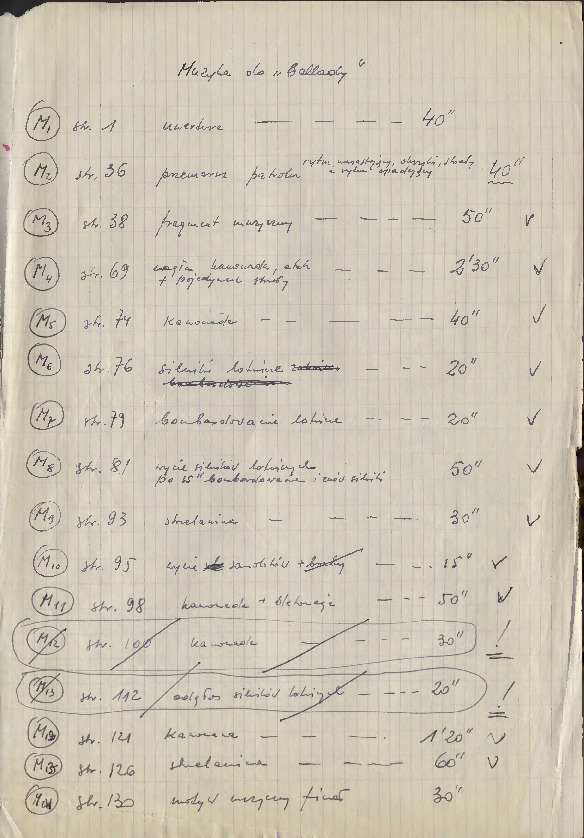 Muzyka do „Ballady"
M1 str. 1 uwertura — — — 40"
M2 str. 36 przemarsz patrolu rytm narastający, okrzyki, strzały 40"
a rytm opadający
M3 str. 38 fragment muzyczny — — — — 50" ✓
M4 str. 69 nagła kanonada, atak — — — 2'30" ✓
+ pojedyncze strzały
M5 str. 74 kanonada — — — — 40" ✓
M6 str. 76 silniki lotnicze — — — 20" ✓
M7 str. 79 bombardowanie lotnicze — — — 20" ✓
M8 str. 81 wycie silników lotniczych 50" ✓
po 15" bombardowanie i znów silniki
M9 str. 93 strzelanina — — — — 30" ✓
M10 str. 95 wycie samolotów + bomby — — — 15" ✓
M11 str. 98 kanonada + detonacje — — — 50" ✓
M12 str. 100 kanonada — — — 30" !
M13 str. 112 odgłos silników lotniczych — — — 20" !
str. 121 kanonada — — — 1'20" ✓
str. 126 strzelanina — — — 60" ✓
str. 130 motyw muzyczny finał 30"